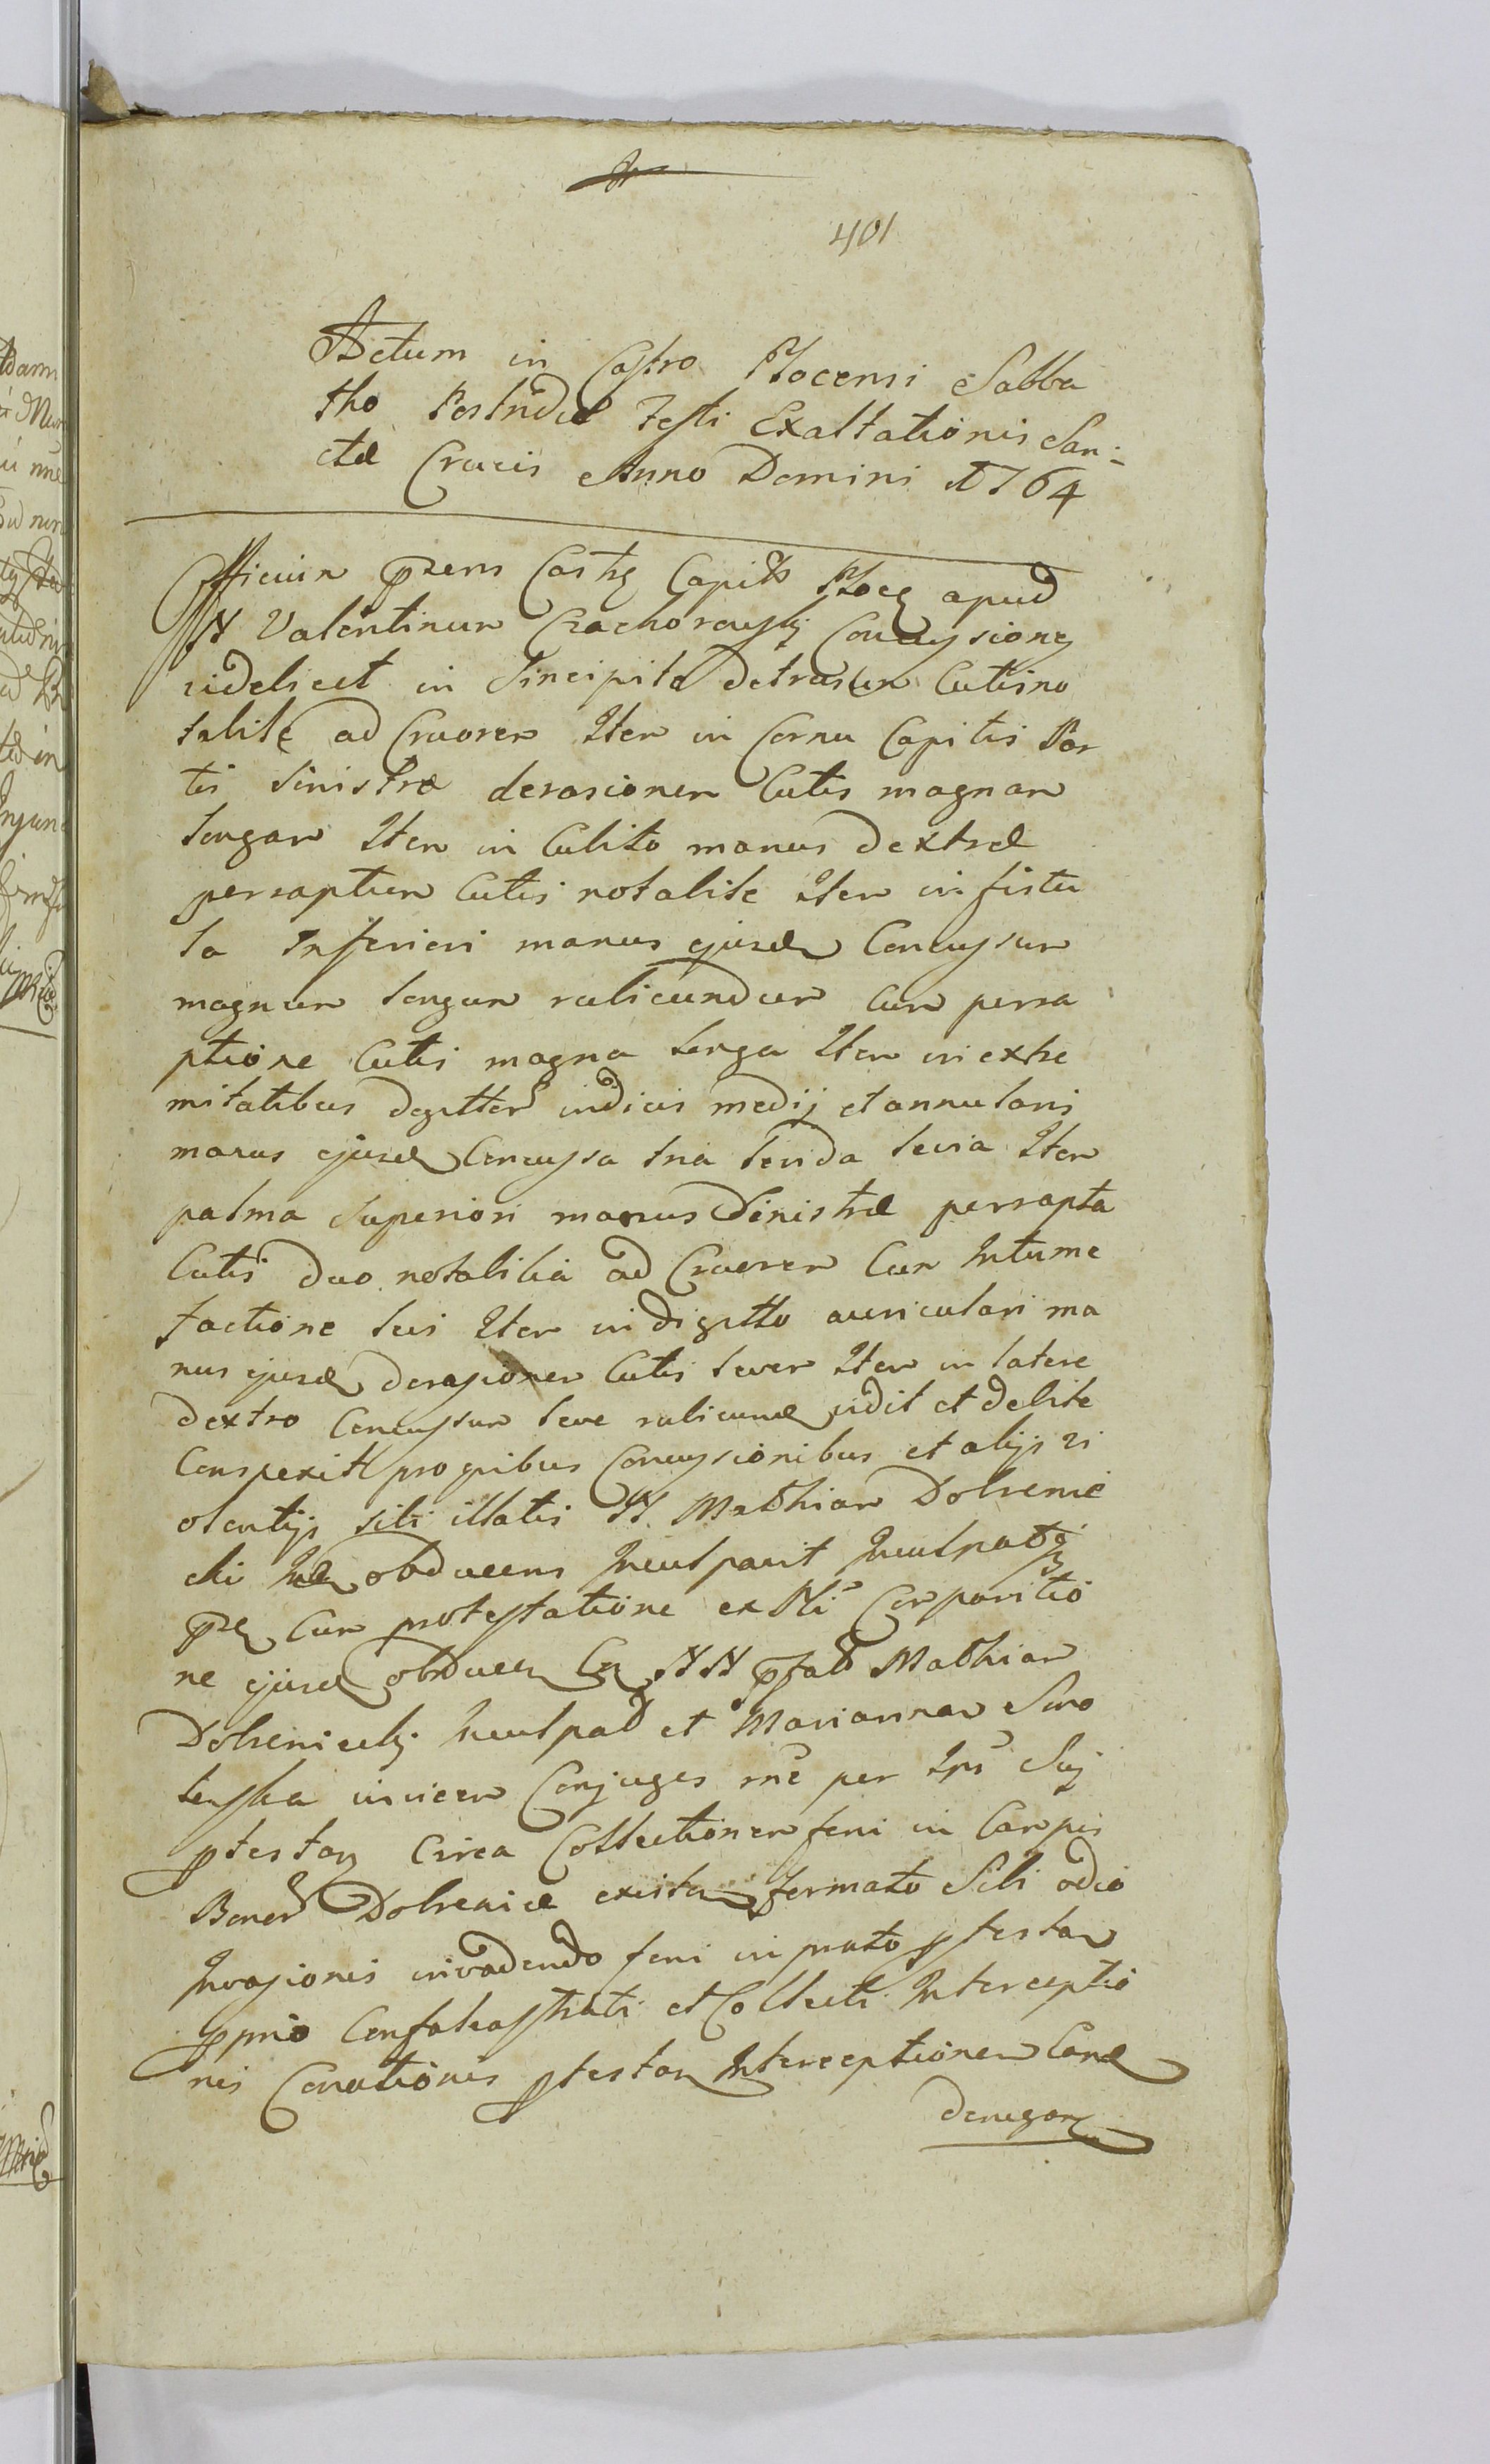 401
Actum in Castro Plocensi Sabba
tho Postridie Festi Exaltationis San:
ctæ Crucis Anno Domini 1764
Officium præns Castr Capitt Ploc apud
N Valentinum Conccussiones
videlicet in Sincipite detrasum Cutis no
tabile ad Cruorem Item in Cornu Capitis Par
tis Sinistræ derasionem Cutis magnam
longam Item in Cubito manus dextræ
perraptum Cutis notabile Item in fistu
la Inferiori manus ejusd Concussum
magnum longum rubicundum cum perra
ptione Cutis magna longa Item in extre
mitatibus degitter indicis medij et annularis
manus ejusd Concussa tria livida levia Item
palma Superiori manus Sinistræ perrapta
Cutis duo notabilia ad Cruorem Cum Intume
factione levi Item in digitto auriculari ma
nus ejusd derasionem Cutis levem Item in latere
dextro Concussum leve rubicund vidit et debite
Conspexit pro quibus Concussionibus et alijs vi
olentijs sibi illatis N. Mathiam Dobrenie
cki obducens Inculpavit
Cum protestatione ex Comparitio
ne ejusd NN Mathiam
Dobrenicki Inculpat et Mariannam Suro
invicem Conjuges per Ips
ptestan Circa Collectionem feni in Campis
Bonor Dobrenice existen formato Sibi odio
Invasionis invadendo feni in prato ptestan
pprio Confalcastrati et Collecti Interceptio
nis Conationis ptestan Interceptionem
denegan